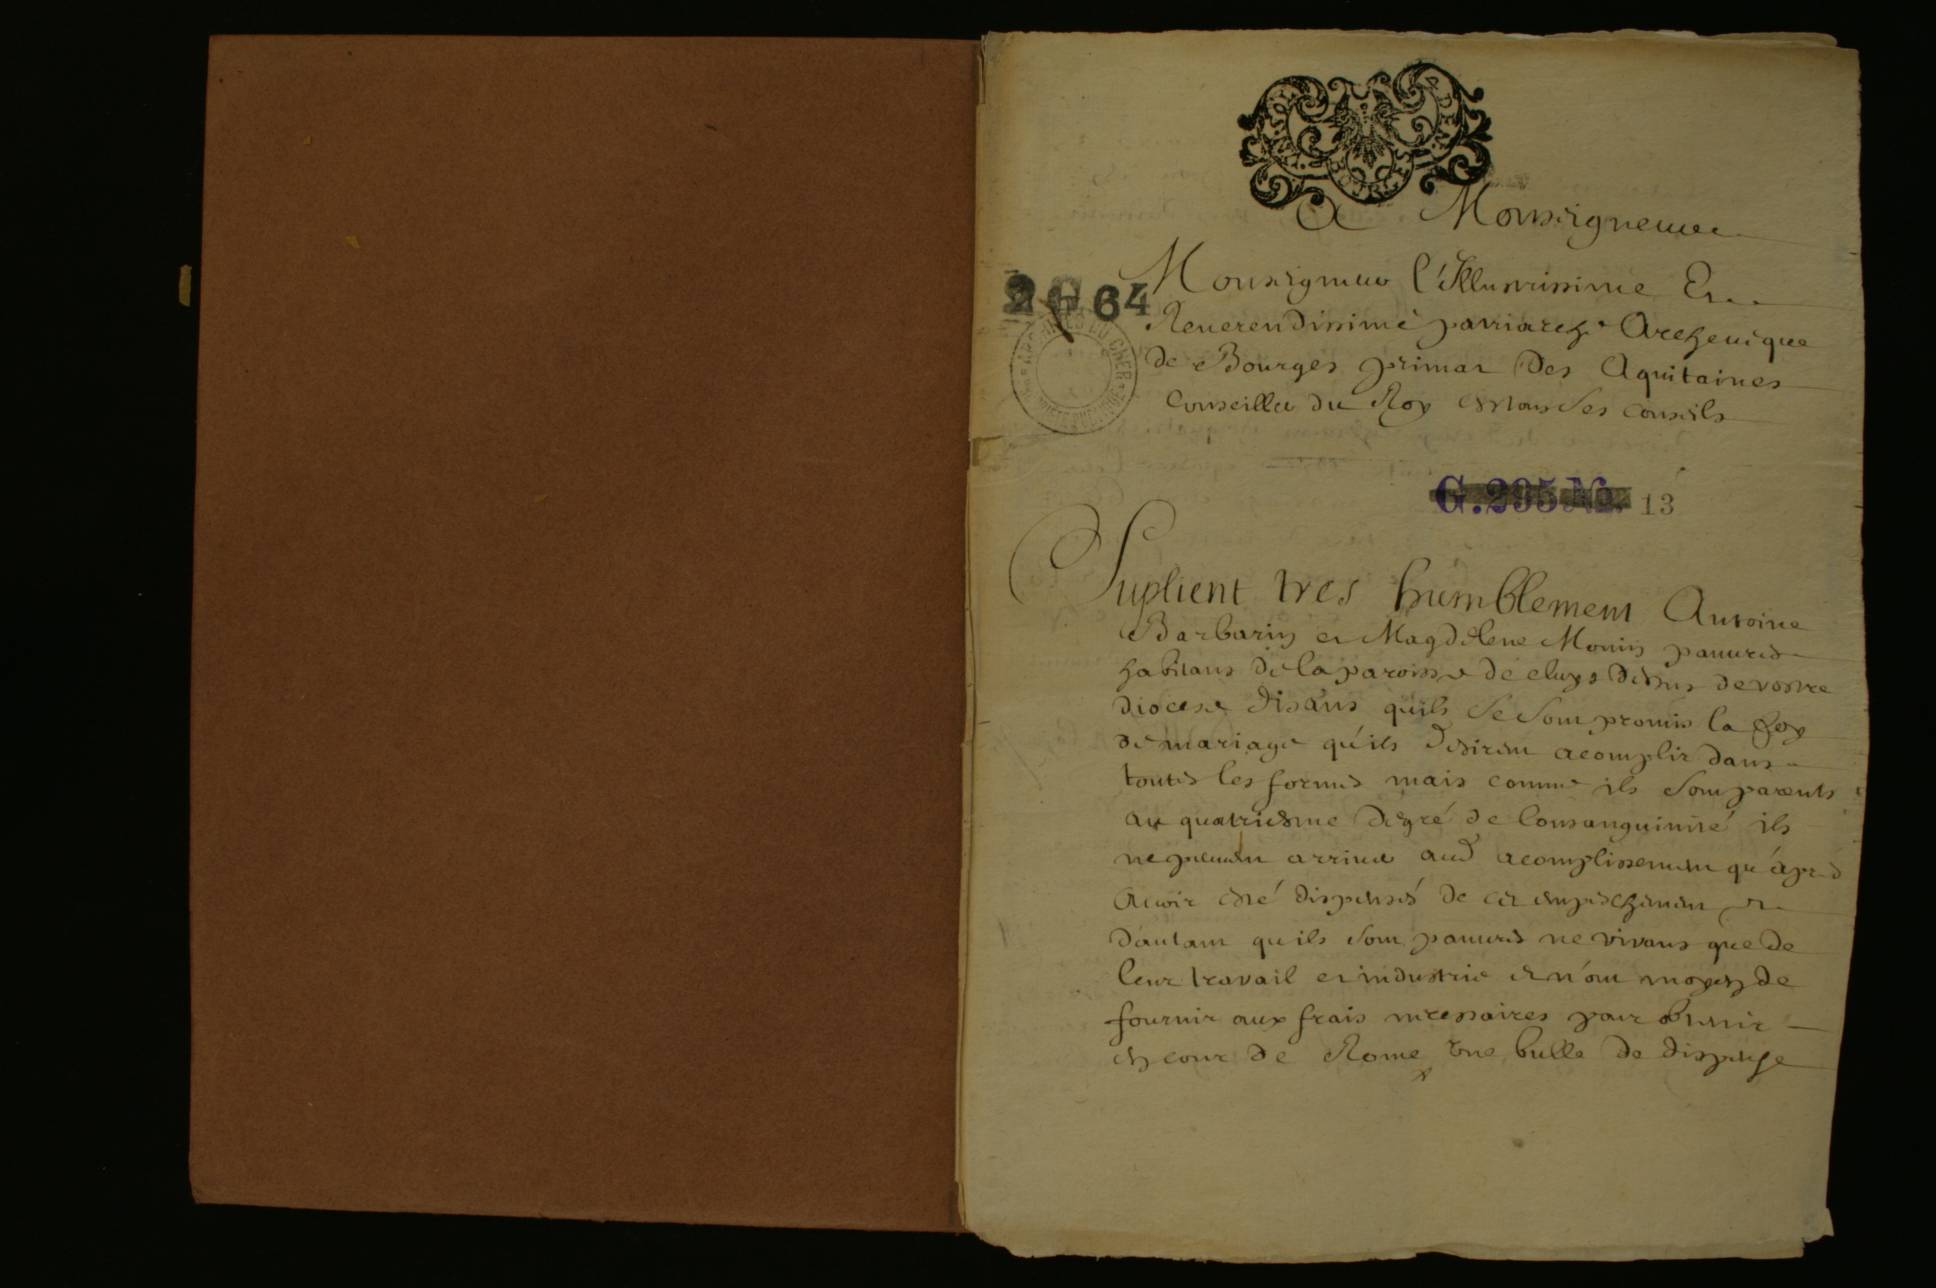 A Monseigneur
Monseigneur l'Illustrissime Et
Reuerendissime patriarche Archeuêque
de Bourges primat Des Aquitaines
Conseiller du Roy en tous ses conseils
2 G 64
ARCHIVES DU CHER
G. 295 No. 13
Suplient tres humblement Antoine
Barbarin et Magdelene Monin pauures
habitans de la paroisse de cluys dessus de vostre
diocese disans quils se sont promis la foy
de mariage qu'ils desirent acomplir dans
toutes les formes mais comme ils sont parents
au quatriesme degré de Consanguinité ils
ne peuuent arriuer aud acomplissement qu'àpres
auoir esté dispensés de cet empeschement et
d'autant quils sont pauures ne vivans que de
leur travail et industrie et n'ont moyen de
fournir aux frais necessaires pour obtenir
en cour de Rome vne bulle de dispense